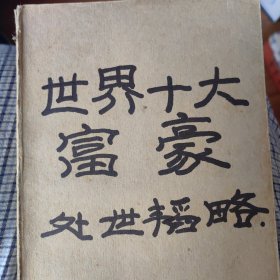 世界十大
富豪
处世韬略.